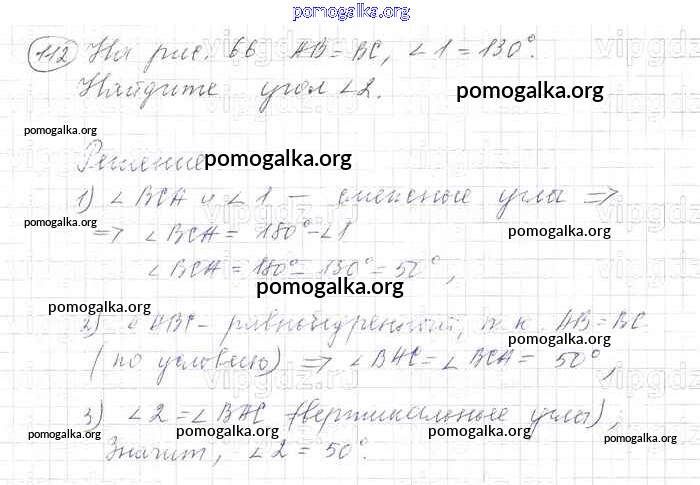 pomogalka.org
112 На рис. 66 AB = BC, ∠1 = 130°.
Найдите угол ∠2.
pomogalka.org
pomogalka.org
Решение
pomogalka.org
1) ∠BCA и ∠1 — смежные углы ⇒
pomogalka.org
⇒ ∠BCA = 180° - ∠1
pomogalka.org
∠BCA = 180° - 130° = 50°,
pomogalka.org
pomogalka.org
2) ABC - равнобедренный, т.к. AB = BC
pomogalka.org
(по условию) ⇒ ∠BAC = ∠BCA = 50°,
pomogalka.org
3) ∠2 = ∠BAC (вертикальные углы),
pomogalka.org
pomogalka.org
pomogalka.org
pomogalka.org
Значит, ∠2 = 50°.